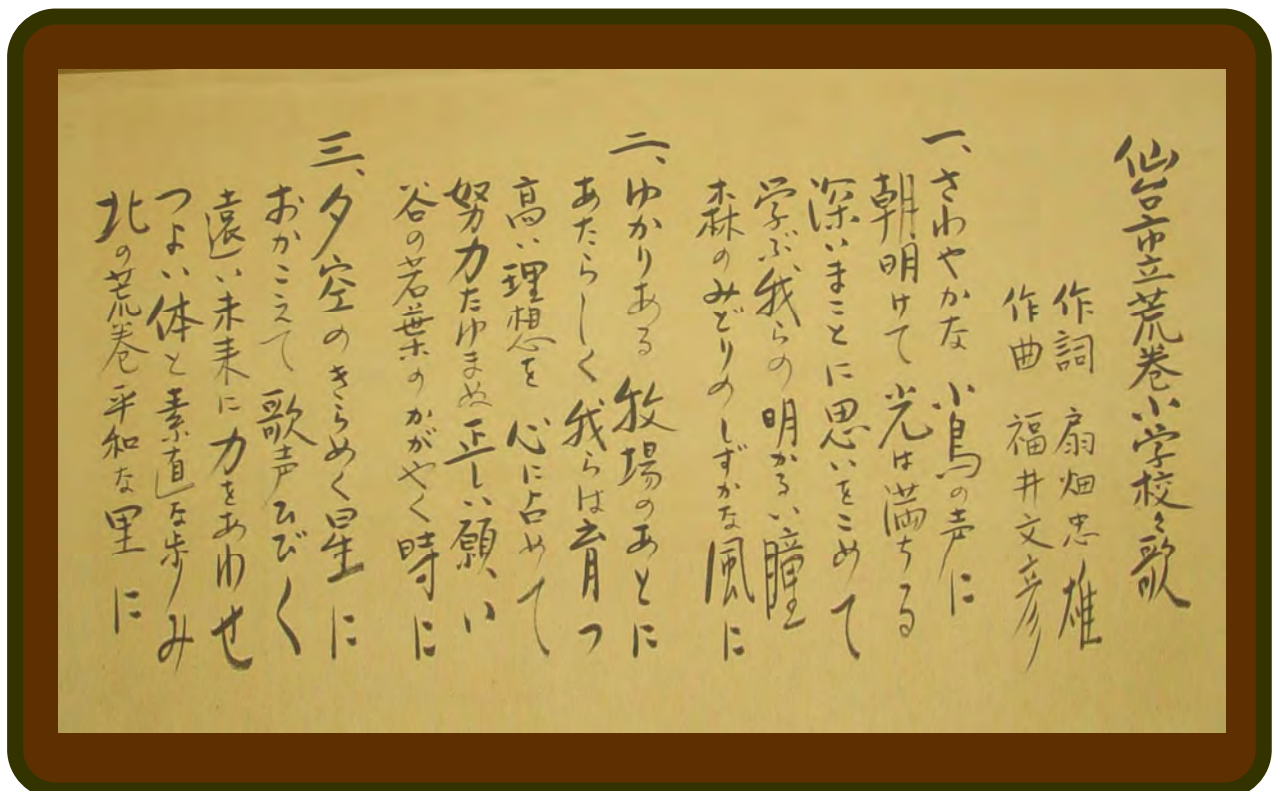 仙台市立荒巻小学校々歌
作詞 扇畑忠雄
作曲 福井文彦
一、さわやかな 小鳥の声に
朝明けて 光は満ちる
深いまことに思いをこめて
学ぶ我らの 明かるい瞳
森のみどりの しずかな風に
二、ゆかりある 牧場のあとに
あたらしく 我らは育つ
高い理想を 心に占めて
努力たゆまぬ 正しい願い
谷の若葉の かがやく時に
三、夕空の きらめく星に
おかこえて 歌声ひびく
遠い未来に 力をあわせ
つよい体と 素直な歩み
北の荒巻 平和な里に